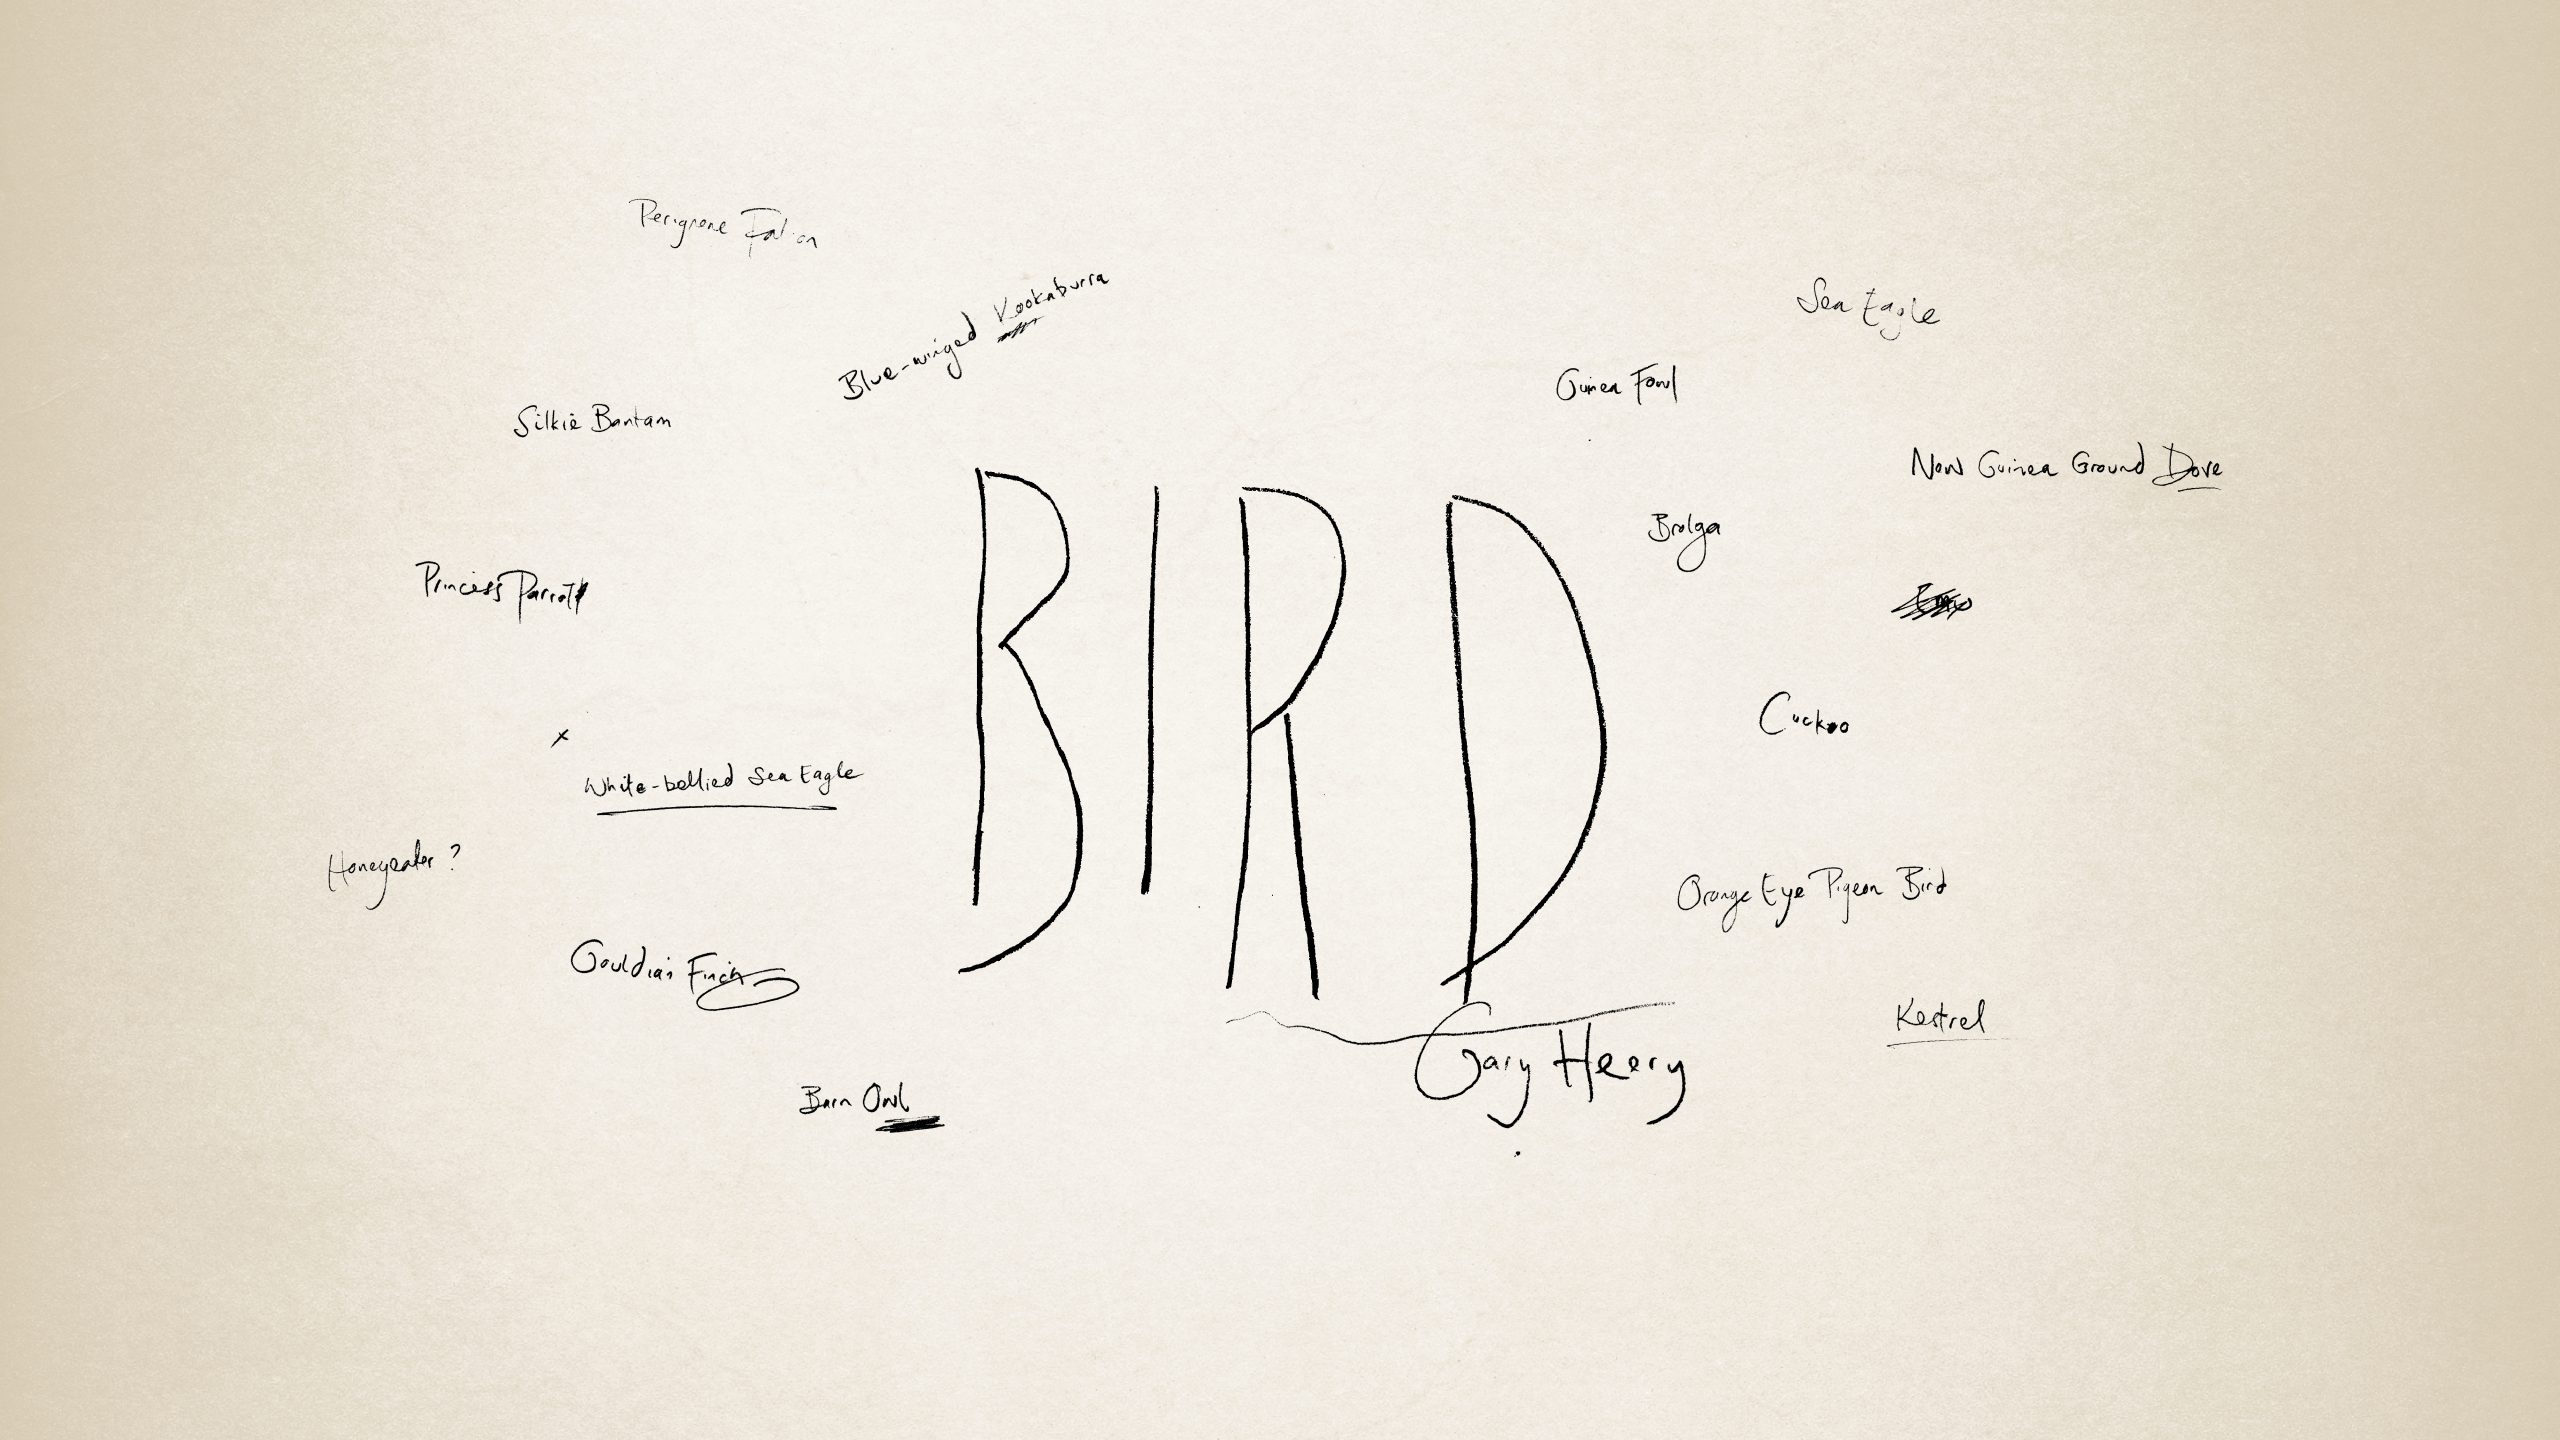 Perigrene Falcon
Blue-winged Kookaburra
Sea Eagle
Guinea Fowl
Silkie Bantam
New Guinea Ground Dove
BIRD
Brolga
Princess Parrot
Cuckoo
x
White-bellied Sea Eagle
Honeyeater ?
Orange Eye Pigeon Bird
Gouldian Finch
Kestrel
Gary Heery
Barn Owl